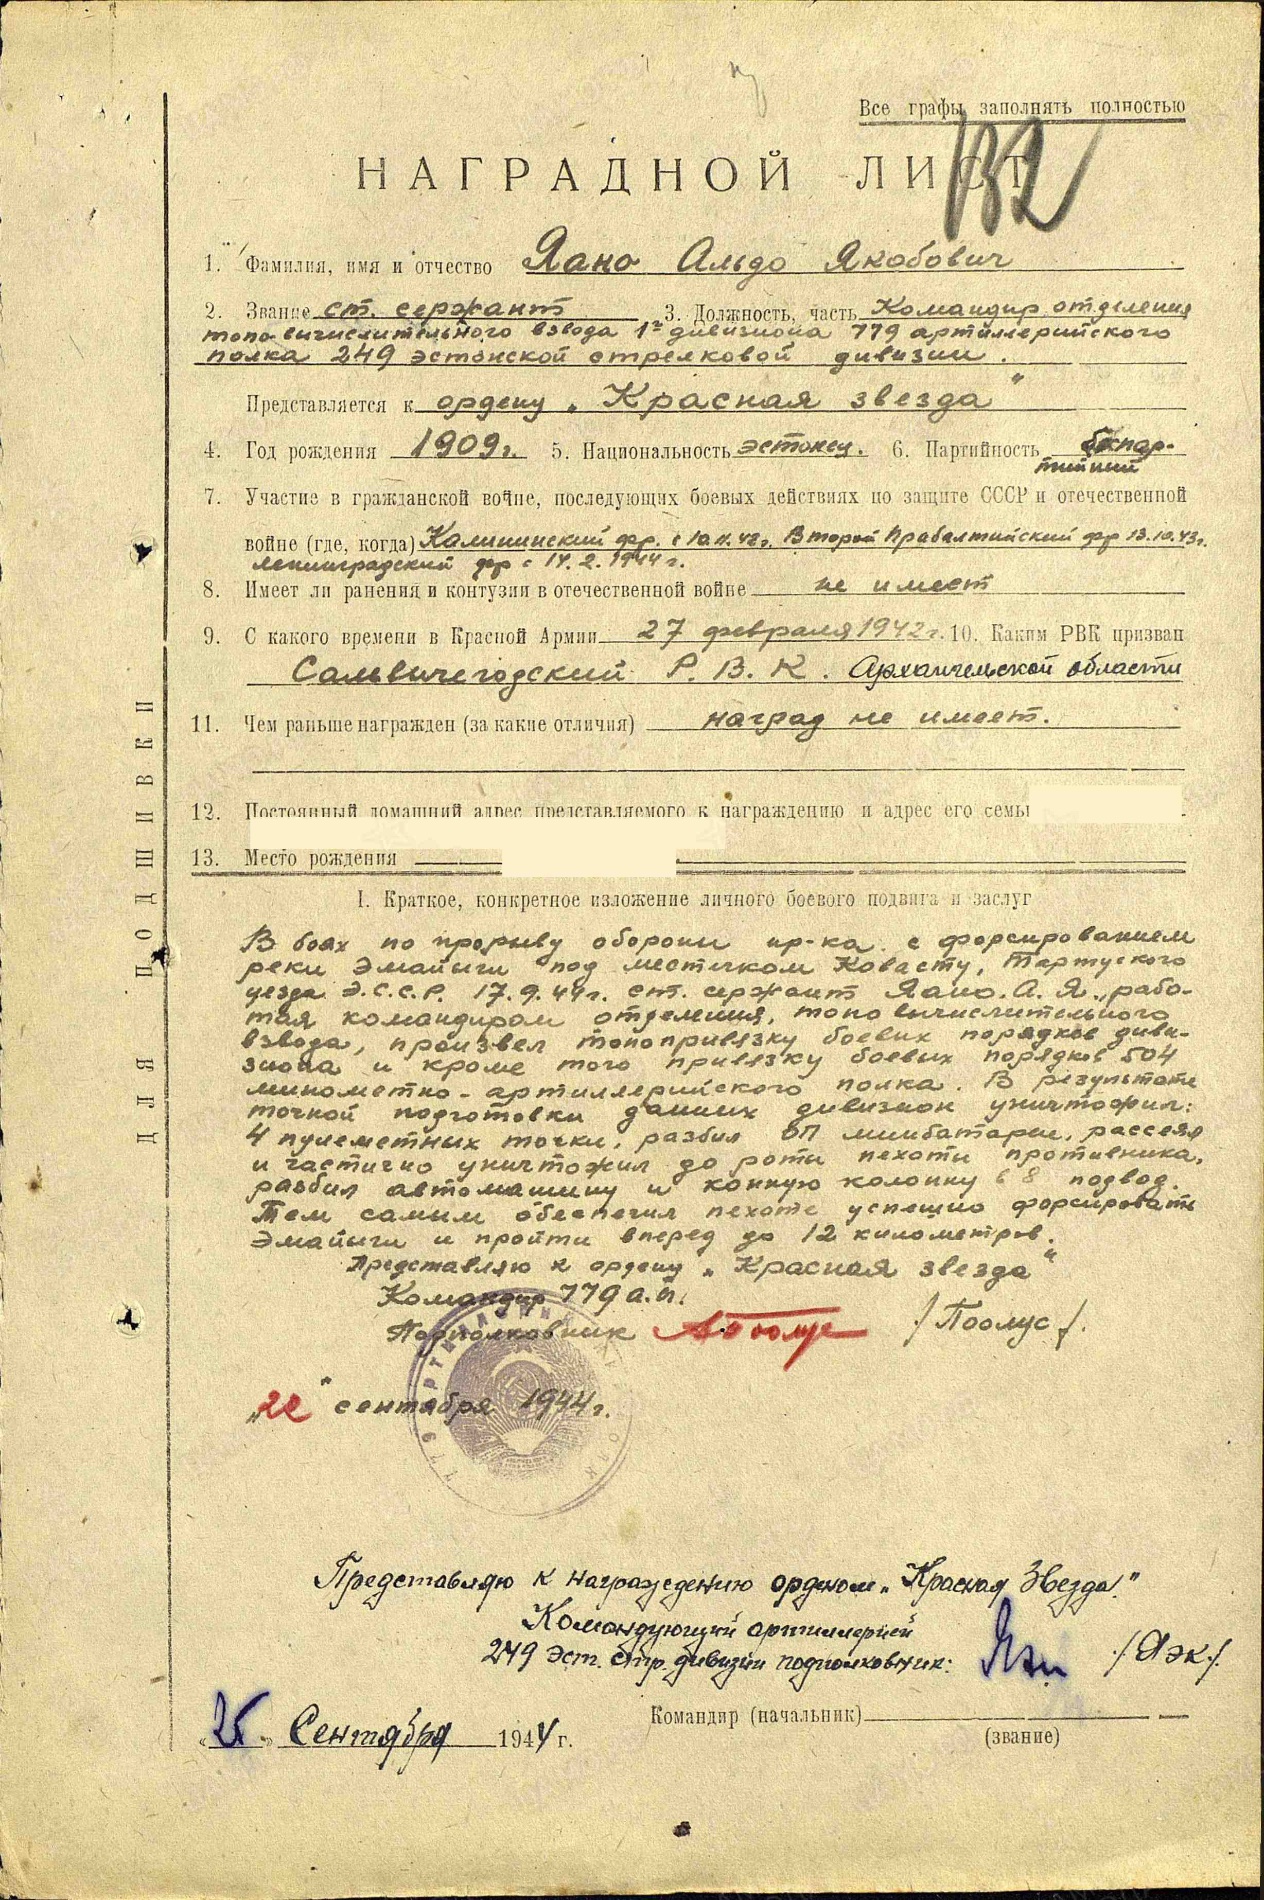 Все графы заполнять полностью
132
НАГРАДНОЙ ЛИСТ
1. Фамилия, имя и отчество Яано Альдо Якобович
2. Звание ст. сержант 3. Должность, часть Командир отделения
топо-вычислительного взвода 1го дивизиона 779 артиллерийского
полка 249 эстонской стрелковой дивизии.
Представляется к ордену „Красная звезда"
4. Год рождения 1909г. 5. Национальность эстонец. 6. Партийность беспар-
тийный
7. Участие в гражданской войне, последующих боевых действиях по защите СССР и отечественной
войне (где, когда) Калининский фр. с 10.11.42г. Второй Прабалтийский фр 13.10.43г.
Ленинградский фр с 14.2.1944г.
8. Имеет ли ранения и контузии в отечественной войне не имеет
9. С какого времени в Красной Армии 27 февраля 1942г. 10. Каким РВК призван
Сольвичегодский Р.В.К. Архангельской области
11. Чем раньше награжден (за какие отличия) наград не имеет.
12. Постоянный домашний адрес представляемого к награждению и адрес его семьи
13. Место рождения
I. Краткое, конкретное изложение личного боевого подвига и заслуг
В боях по прорыву обороны пр-ка с форсированием
реки Эмайыги под местечком Кавасту, Тартуского
уезда Э.С.С.Р. 17.9.44г. ст. сержант Яано. А. Я., рабо-
тая командиром отделения, топо вычислительного
взвода, произвел топопривязку боевых порядков диви-
зиона и кроме того привязку боевых порядков 504
минометно-артиллерийского полка. В результате
точной подготовки данных дивизион уничтожил:
4 пулеметных точки, разбил ОП минбатареи, рассеял
и частично уничтожил до роты пехоты противника,
разбил автомашину и конную колонну в 8 подвод.
Тем самым обеспечил пехоте успешно форсировать
Эмайыги и пройти вперед до 12 километров.
Представляю к ордену „Красная звезда"
Командир 779 а.п.
Подполковник /Поолус/.
„22" сентября 1944г.
Представляю к награждению орденом „Красная Звезда"
Командующий артиллерией
249 Эст. Стр. дивизии подполковник: /Яэк/.
«25» Сентября 1944 г.
Командир (начальник)
(звание)
ДЛЯ ПОДШИВКИ